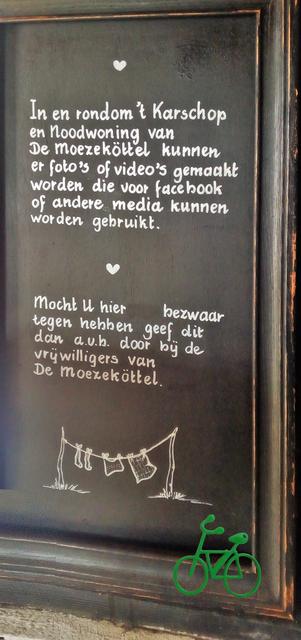 In en rondom 't Karschop
en Noodwoning van
De Moezeköttel kunnen
er foto's of video's gemaakt
worden die voor facebook
of andere media kunnen
worden gebruikt.
Mocht U hier bezwaar
tegen hebben geef dit
dan a.u.b. door bij de
vrijwilligers van
De Moezeköttel.